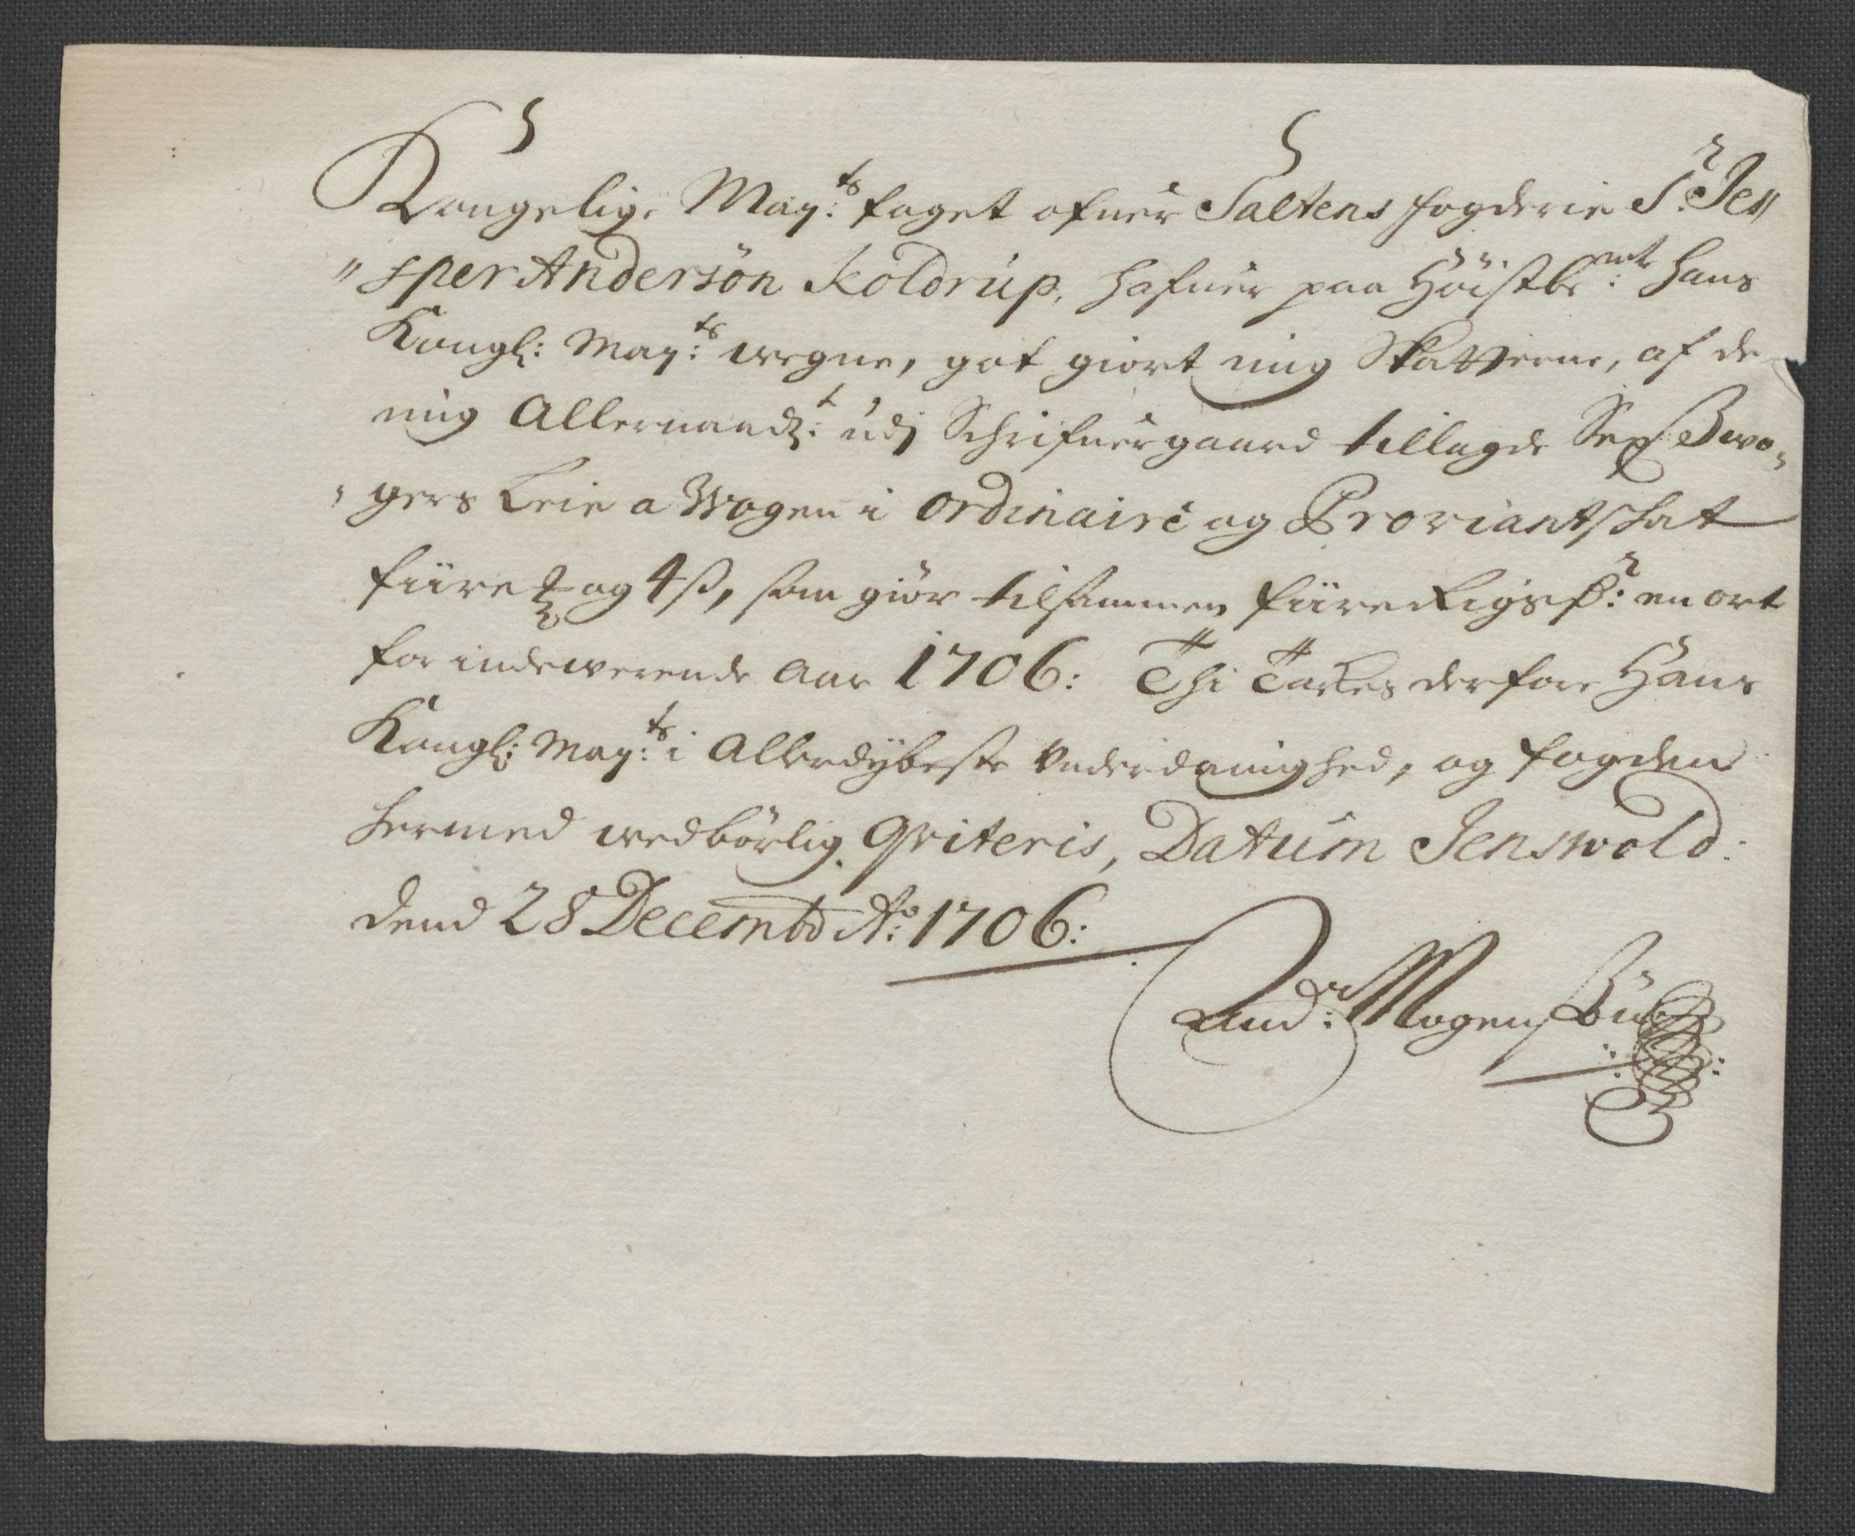 Kongelig May:ts foget ofuer Saltens fogderie Sr. Je//
//sper Andersön Koldrup, hafuer paa Höistbe:mte Hans
Kongl: May:ts wegne, got giort mig Skatterne, af de
mig Allernaad:t udj Schrifuergaard tillagde Sex Bwo-
-gers Leie a Wogen i Ordinaire og Proviantschat
fiire og 4 ß, som giör tilsammen fiire Rigsdr: en ort
for indewerende Aar 1706: Thi Tackes derfore Hans
Kongl: May:ts i Allerdybeste Underdanighed, og fogden
hermed wedbörlig Qviteris, Datum Jenswold:
dend 28 Decembr Ao: 1706:
And:r Mogens